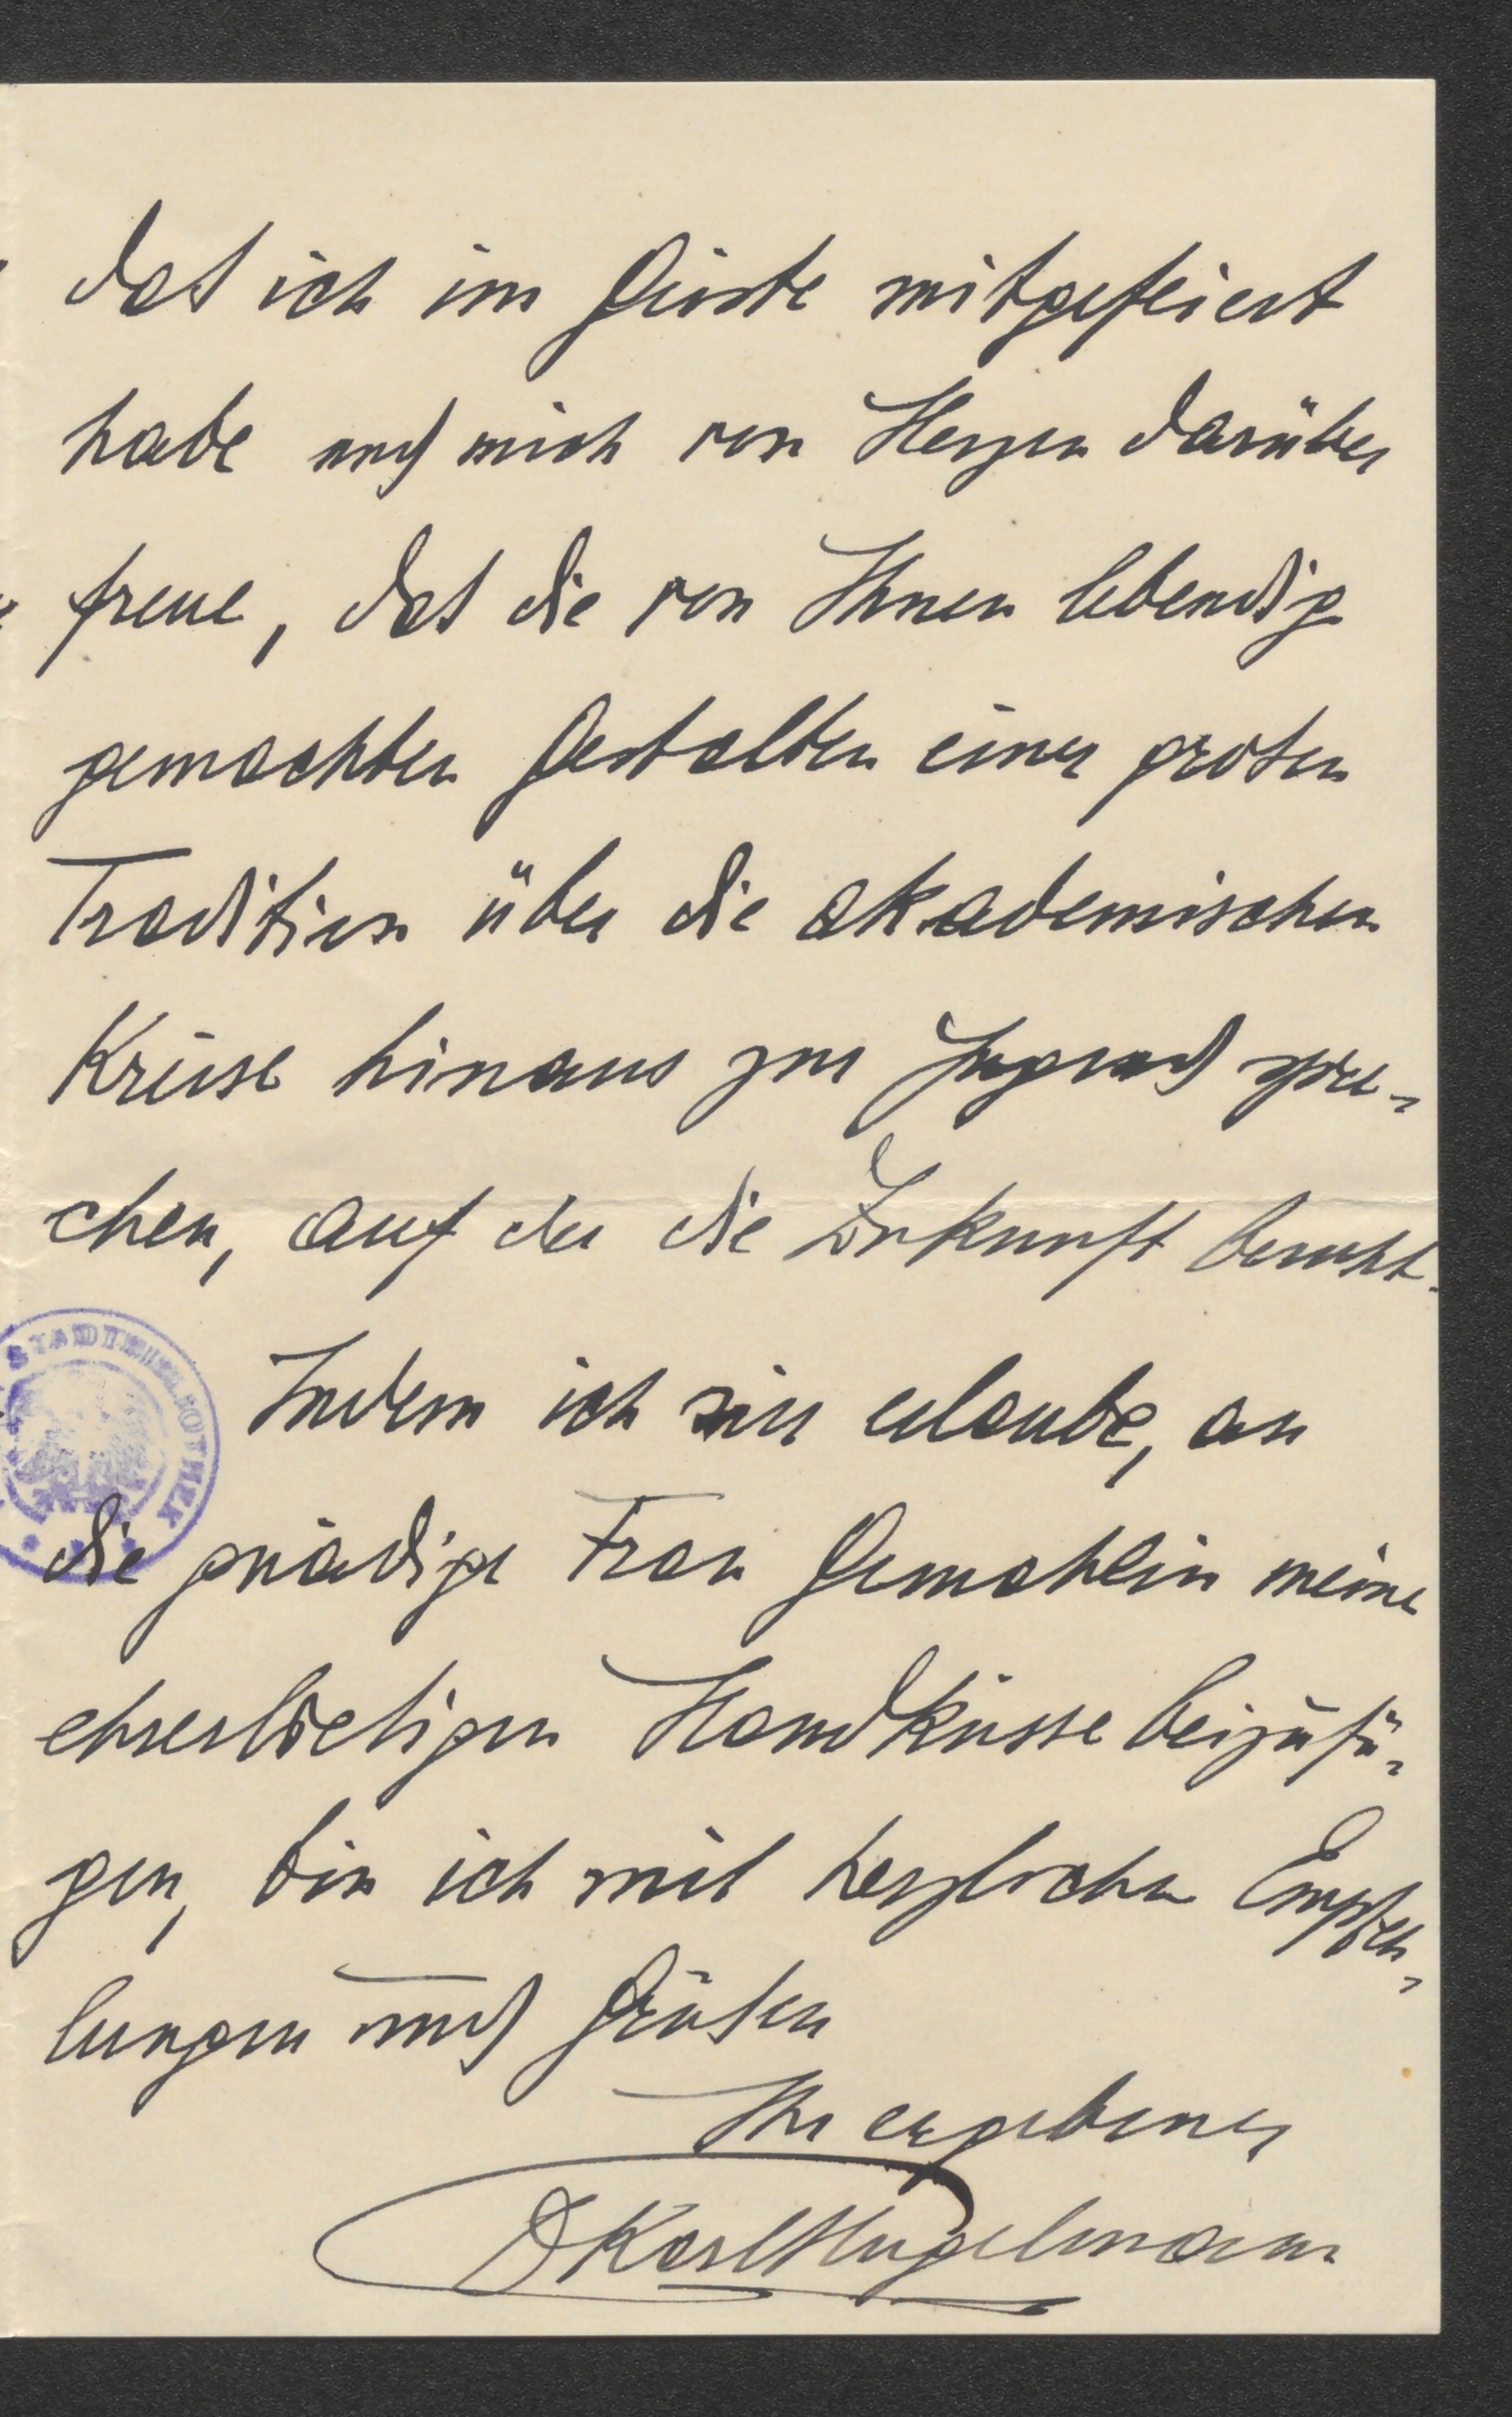 daß ich im Geiste mitgefeiert
habe und mich von Herzen darüber
freue, daß die von Ihnen lebendig
gemachten Gestalten einer großen
Tradition über die akademischen
Kreise hinaus zur Jugend spre-
chen, auf der die Zukunft beruht.
Indem ich mir erlaube, an
die gnädige Frau Gemahlin meine
ehrerbietigen Handküsse beizufü-
gen, bin ich mit herzlichen Empfeh-
lungen und Grüßen
Ihr ergebener
D Karl Hugelmann
STADTBIBLIOTHEK